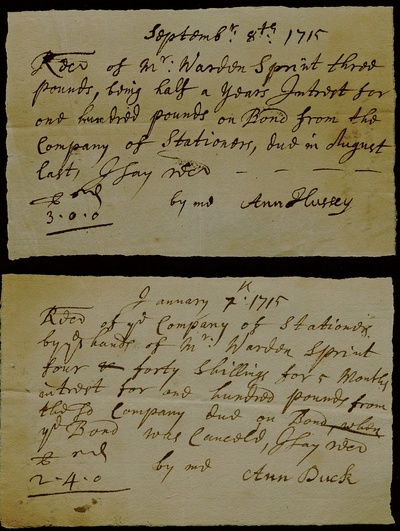 Septembr. 8th 1715
Recd of Mr: Warden Sprint three
pounds, being half a Years Intrest for
one hundred pounds on Bond from the
Company of Stationers, due in August
last, I say recd
by me Ann Hussey
3.0.0
January 1715
Recd of ye Company of Stationers
by ye hands of Mr: Warden Sprint
four & forty Shillings for 5 Months
intrest for one hundred pounds from
the sd Company due on Bond, when
ye Bond was Canceld, I say recd
by me Ann Buck
2-4.0